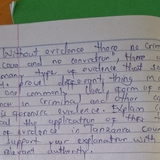 Without evidence there no crim
case and no conviction, there
many type of evidence that
prove different thing
are commonly used form of
ence in criminal and other
is forensic evidence. Explain
the application of this
of evidence in Tanzania cou
support your explanation with
relevant authority.